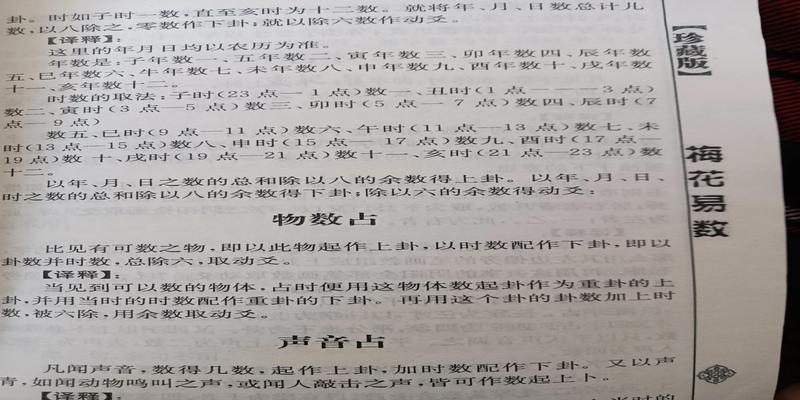 卦。时如子时一数,直至亥时为十二数。就将年、月、日数总计几
数,以八除之,零数作下卦;就以除六数作动爻。
【译释】:
这里的年月日均以农历为准。
年数是:子年数一、五年数二、寅年数三、卯年数四、辰年数
五、巳年数六、牛年数七、未年数八、申年数九、酉年数十、戌年数
十一、亥年数十二。
时数的取法:子时(23点— 1点)数一、丑时(1点———3点)
数二、寅时(3点—5点)数三、卯时(5点—7点)数四、辰时(7
点—9点)
数五、巳时(9点—11点)数六、午时(11点—13点)数七、未
时(13点—15点)数八、申时(15点—17点)数九、酉时(17点—
19点)数十、戌时(19点—21点)数十一、亥时(21点—23点)数
十二。
以年、月、日之数的总和除以八的余数得上卦。以年、月、日、
时之数的总和除以八的余数得下卦;除以六的余数得动爻:
物数占
比见有可数之物,即以此物起作上卦,以时数配作下卦,即以
卦数并时数,总除六,取动爻。
【译释】:
当见到可以数的物体,占时便用这物体数起卦作为重卦的上
卦,并用当时的时数配作重卦的下卦。再用这个卦的卦数加上时
数,被六除,用余数取动爻。
声音占
凡闻声音,数得几数,起作上卦,加时数配作下卦。又以声
青,如闻动物鸣叫之声,或闻人敲击之声,皆可作数起上卜。
【译释】:
当时的
【珍藏版】
梅花易数